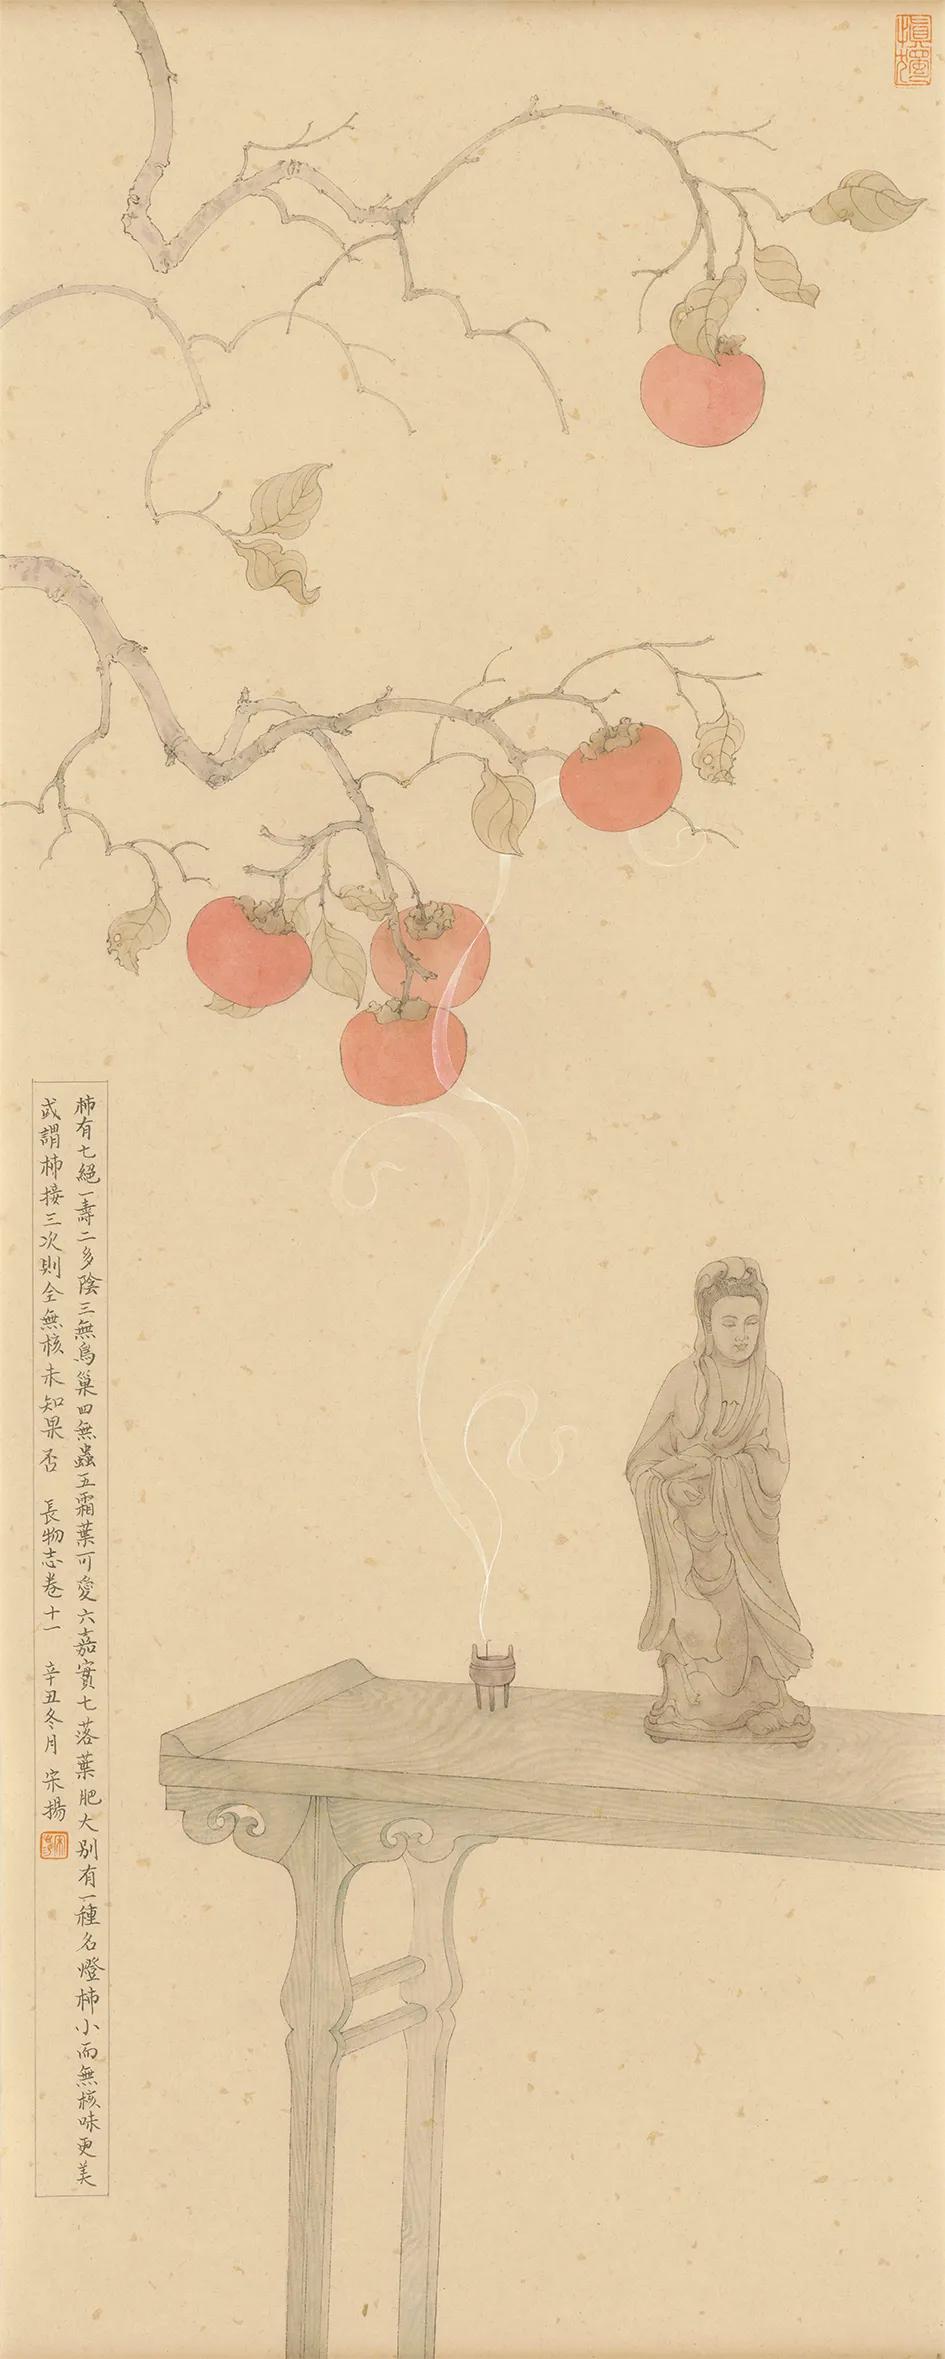 柿有七絕一壽二多陰三無鳥巢四無蟲五霜葉可愛六嘉實七落葉肥大別有一種名燈柿小而無核味更美
或謂柿接三次則全無核未知果否 長物志卷十一 辛丑冬月 宋揚